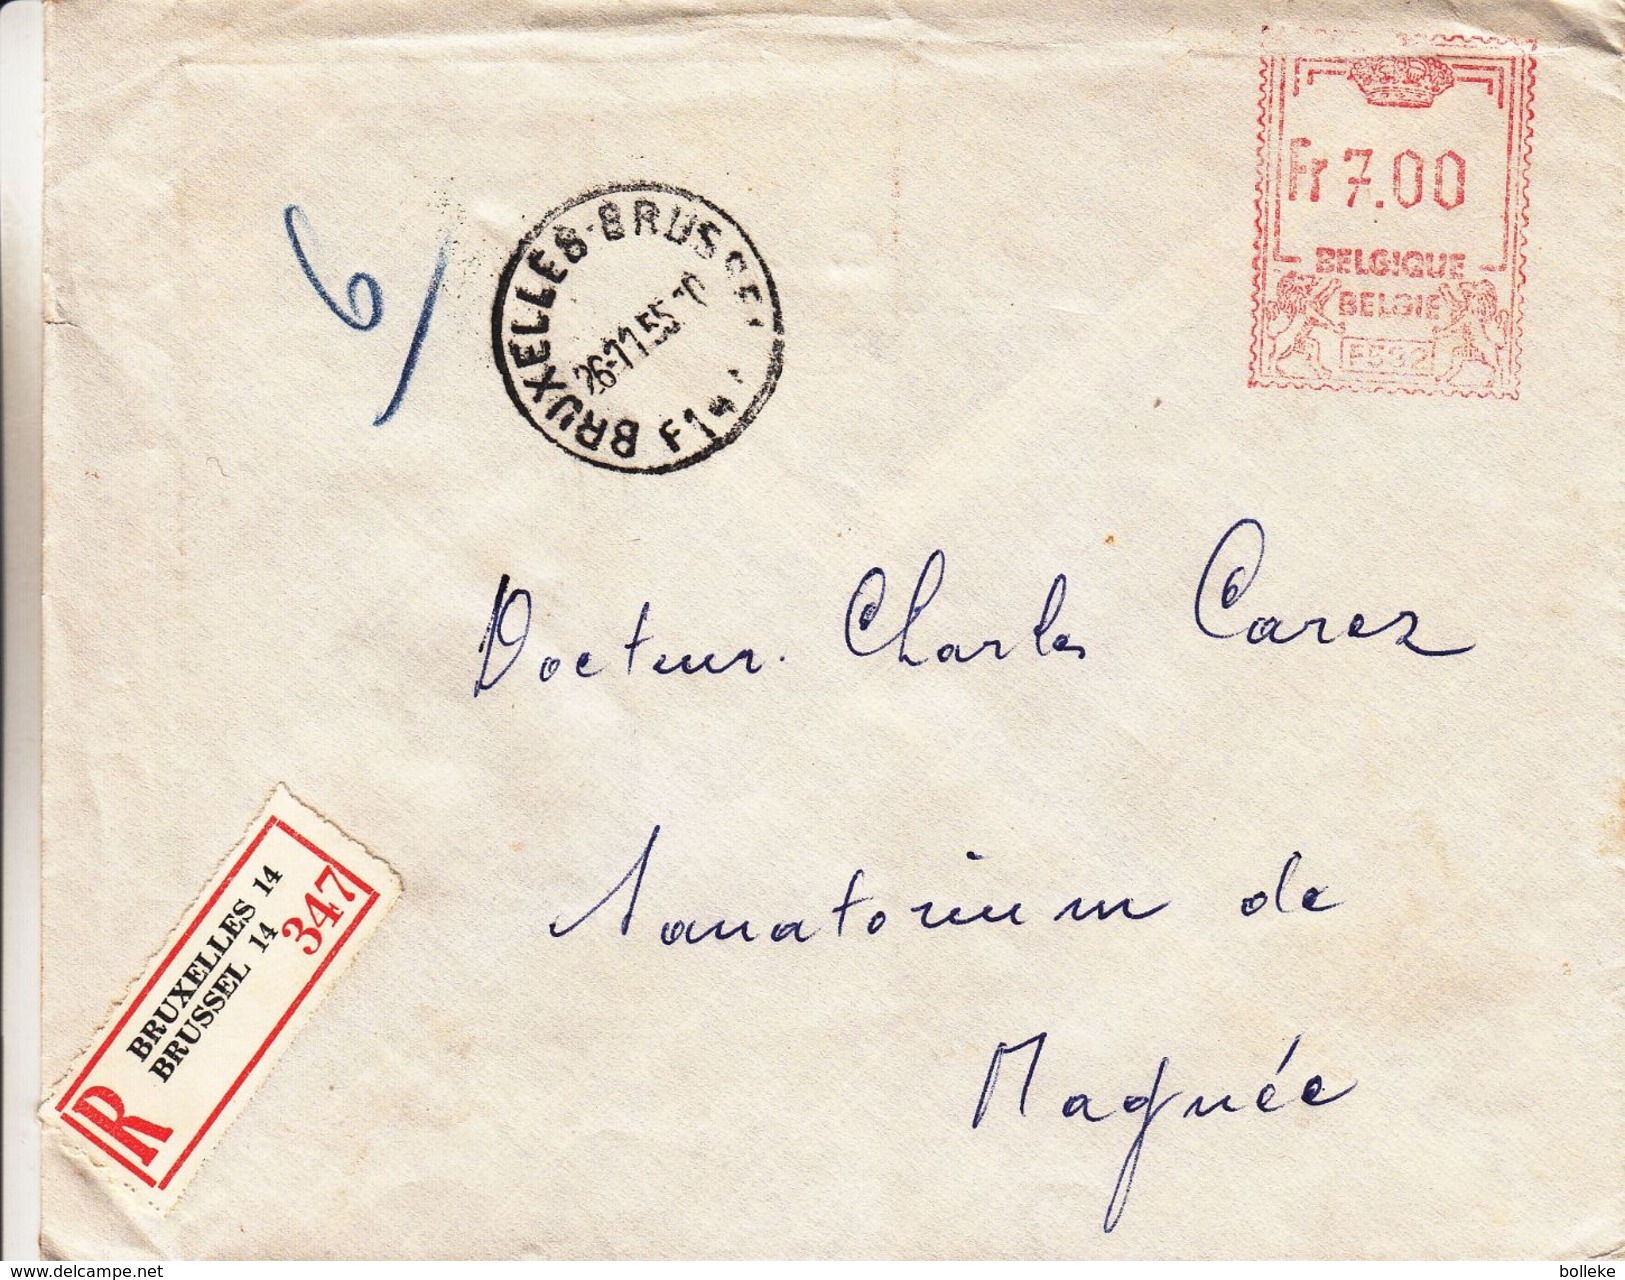 6
BRUXELLES-BRUSSEL
26-11.55
F1
Fr 7.00
BELGIQUE
BELGIE
Docteur. Charles Carez
Sanatorium de
Magnée
R
BRUXELLES 14
BRUSSEL 14
347
www.delcampe.net
bolleke